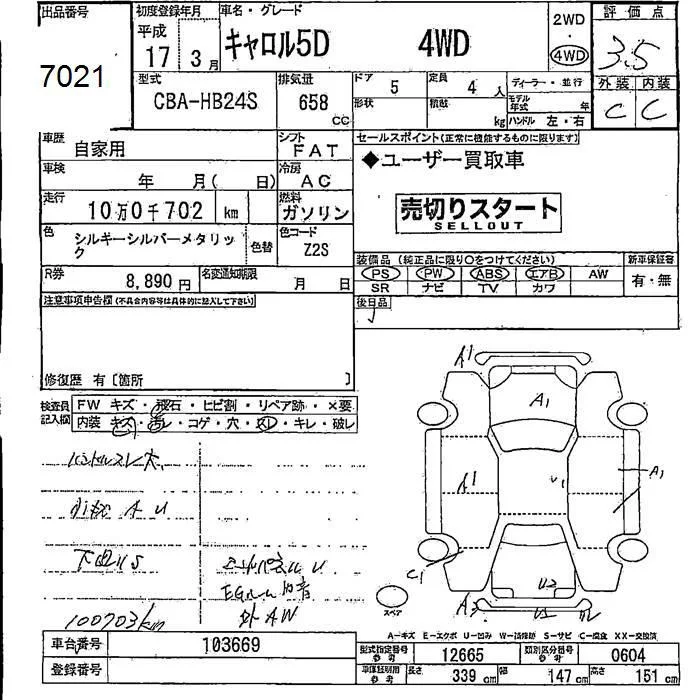 出品番号 初度登録年月 車名・グレード 2WD 評価点
7021 平成 17 3月 キャロル5D 4WD 4WD 3.5
型式 排気量 ドア 5 定員 4人 ディーラー・並行 外装 内装
CBA-HB24S 658 cc 形状 積載 kg モデル年式 年 ハンドル 左・右 C C
車歴 自家用 シフト FAT セールスポイント(正常に機能するものに限ります)
車検 年 月( 日) 冷房 AC ◆ユーザー買取車
走行 10万0千702 km 燃料 ガソリン 売切りスタート
SELLOUT
色 シルキーシルバーメタリック 色替 色コード Z2S
装備品(純正品に限り○をつけてください) 新車保証書
R券 8,890円 名変通知期限 月 日 PS PW ABS エアB AW 有・無
SR ナビ TV カワ
注意事項申告欄(不具合内容等は具体的に記入して下さい) 後日品
修復歴 有〔箇所 〕
検査員記入欄 FW キズ・飛石・ヒビ割・リペア跡・×要
内装 キズ・汚レ・コゲ・穴・スレ・キレ・破レ
A1
A1
ハンドルスレ大
A1 U1 A1
小傷 A U
下回りS
C1
U2
EGルーム
外AW
100703km
スペア
A-キズ E-エクボ U-凹み W-補修跡 S-サビ C-腐食 XX-交換済
車台番号 103669 型式指定番号 参考 12665 類別区分番号 参考 0604
登録番号 車庫証明用 参考 長さ 339 cm 幅 147 cm 高さ 151 cm